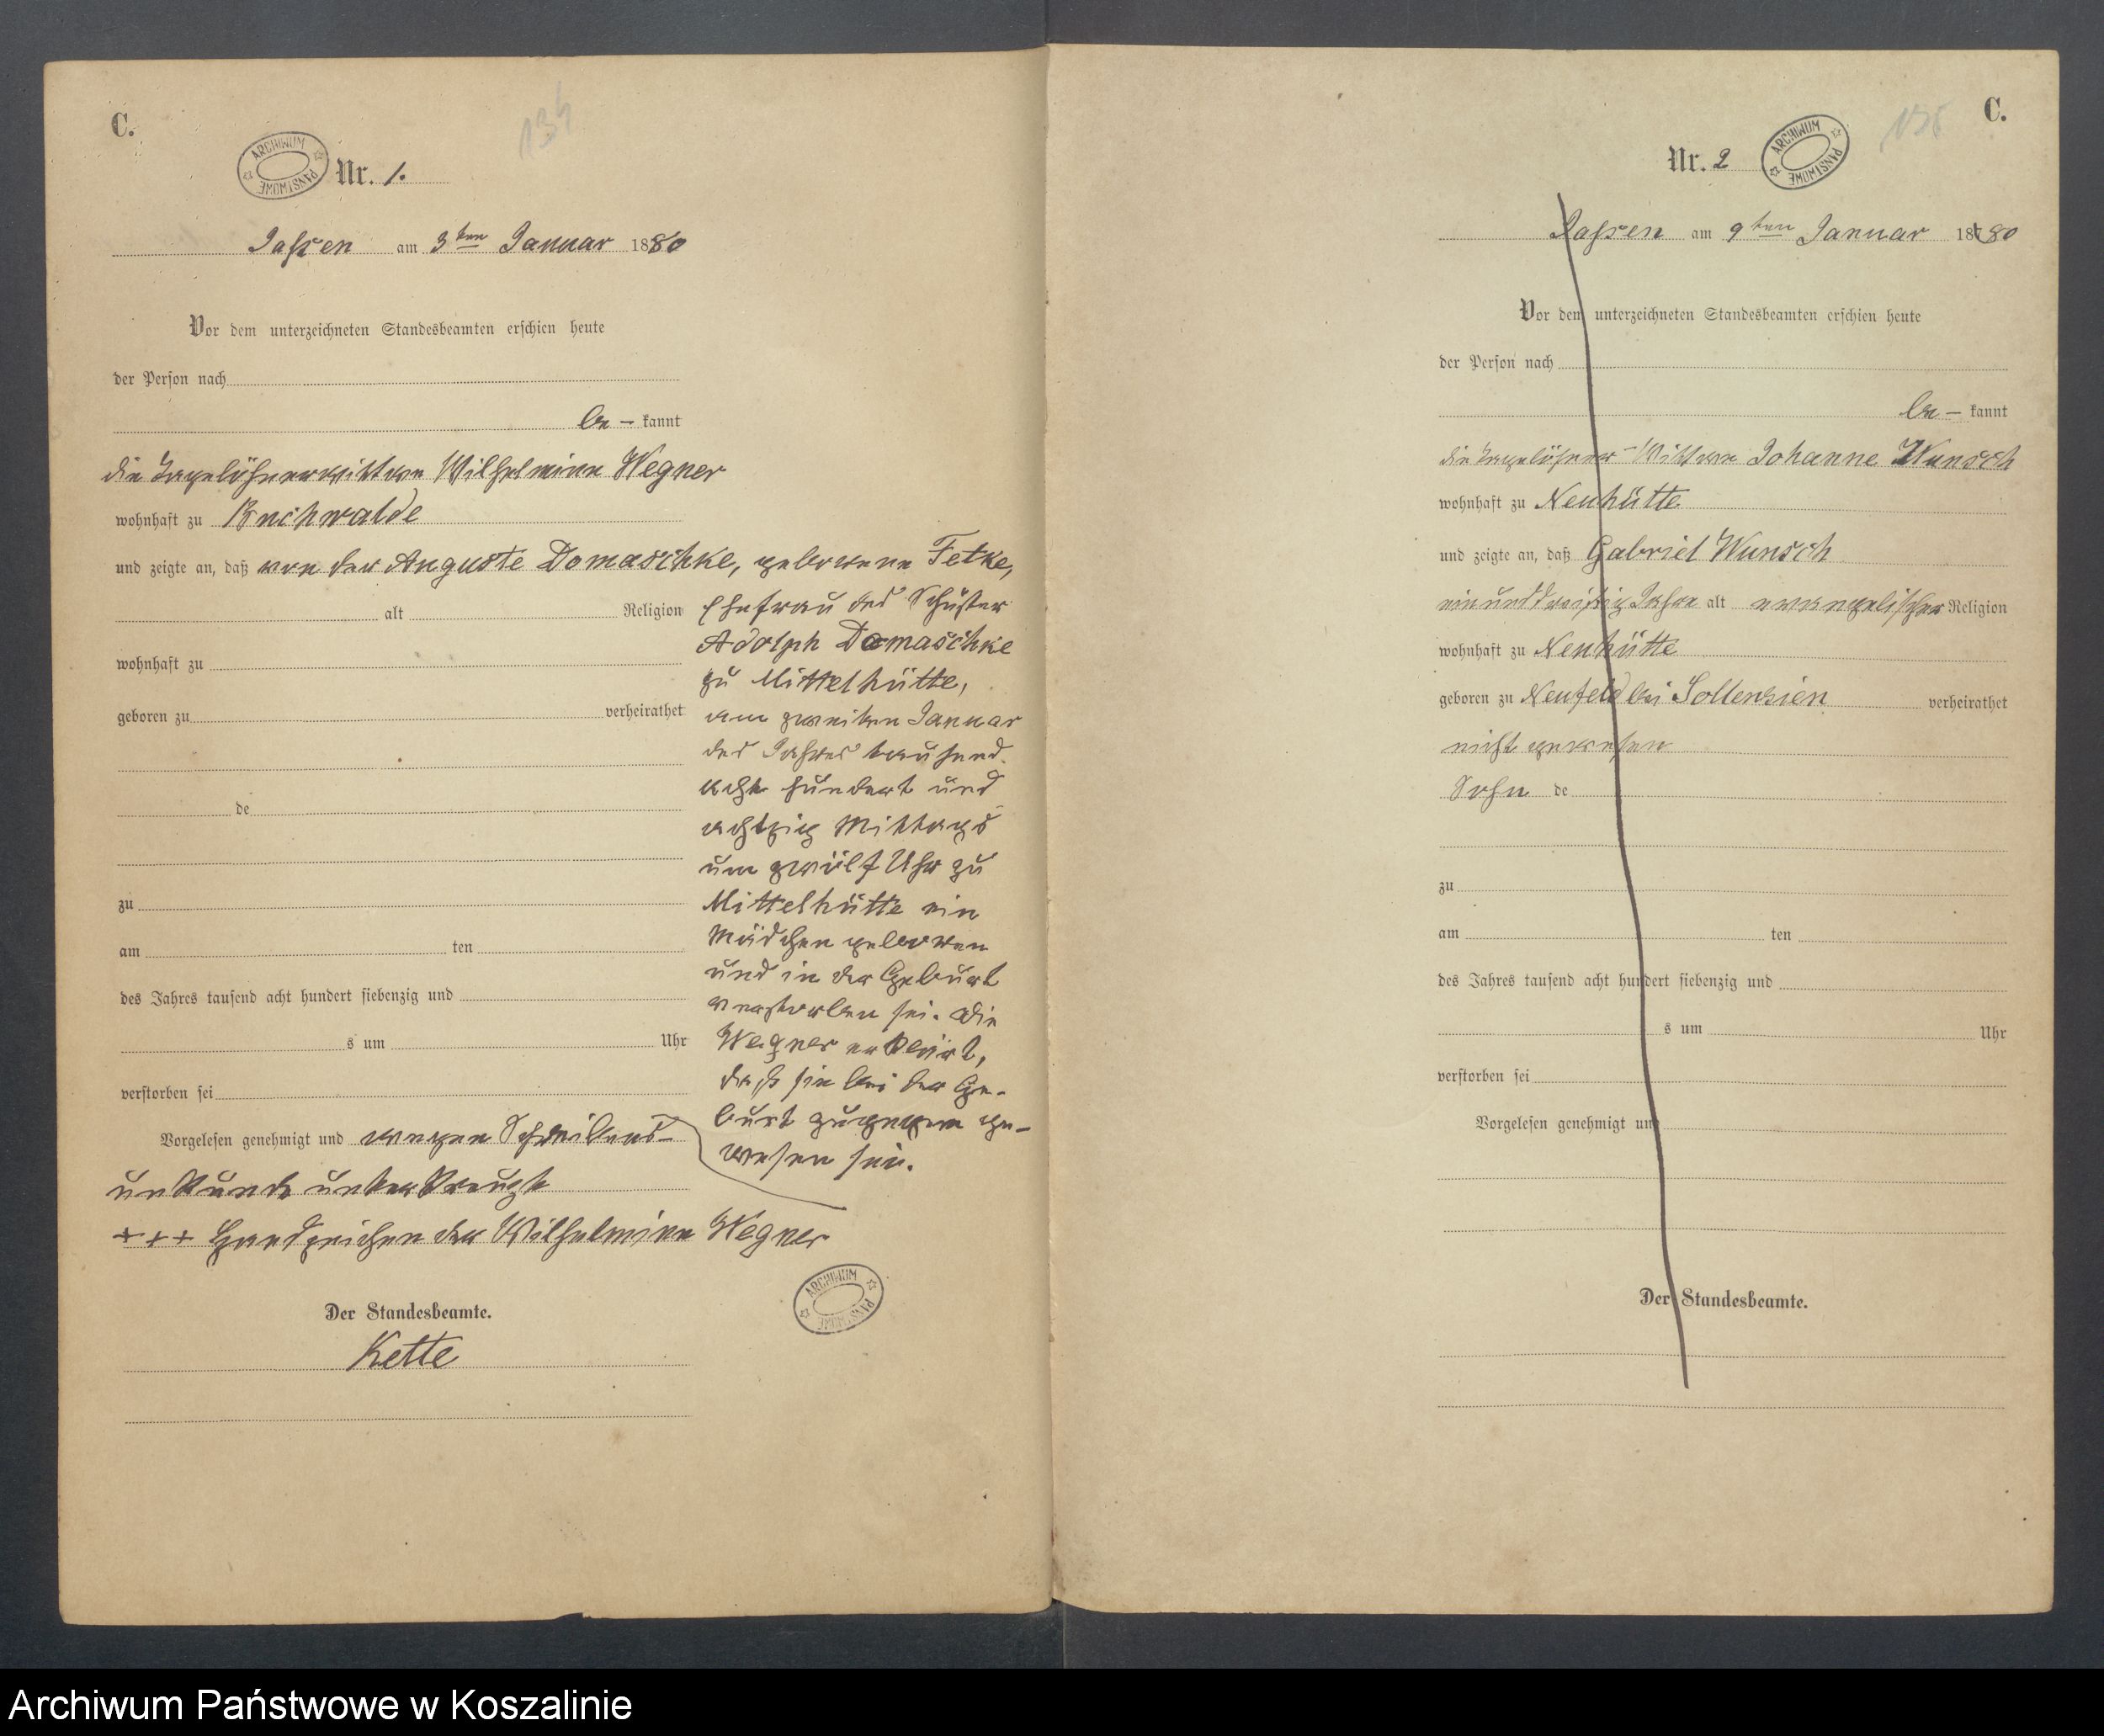 C.
134
ARCHIWUM PAŃSTWOWE
Nr. 1.
Jassen am 3ten Januar 1880
Vor dem unterzeichneten Standesbeamten erschien heute
der Person nach
be- kannt
die Tagelöhnerwittwe Wilhelmine Wegner
wohnhaft zu Buchwalde
und zeigte an, daß von der Auguste Domaschke, geborene Fetke,
alt Religion Ehefrau des Schuster
Adolph Domaschke
wohnhaft zu
zu Mittelhütte,
geboren zu verheirathet am zweiten Januar
des Jahres tausend
acht hundert und
de
achtzig Mittags
um zwölf Uhr zu
zu Mittelhütte ein
Mädchen geboren
am ten
und in der Geburt
des Jahres tausend acht hundert siebenzig und verstorben sei. Die
s um Uhr Wegner erklärt,
daß sie bei der Ge-
verstorben sei
burt zugegen ge-
Vorgelesen genehmigt und wegen Schreibens-
wesen sei.
unkunde unterkreuzt
+++ Handzeichen der Wilhelmine Wegner
ARCHIWUM PAŃSTWOWE
Der Standesbeamte.
Kette
C.
ARCHIWUM PAŃSTWOWE
Nr. 2
Jassen am 9ten Januar 18780
Vor dem unterzeichneten Standesbeamten erschien heute
der Person nach
be- kannt
die Tagelöhner-Wittwe Johanne Wunsch
wohnhaft zu Neuhütte
und zeigte an, daß Gabriel Wunsch
einunddreißig Jahre alt evangelischer Religion
wohnhaft zu Neuhütte
geboren zu Neufeld bei Sollensien verheirathet
nicht gewesen
Sohn de
zu
am ten
des Jahres tausend acht hundert siebenzig und
s um Uhr
verstorben sei
Vorgelesen genehmigt und
Der Standesbeamte.
Archiwum Państwowe w Koszalinie